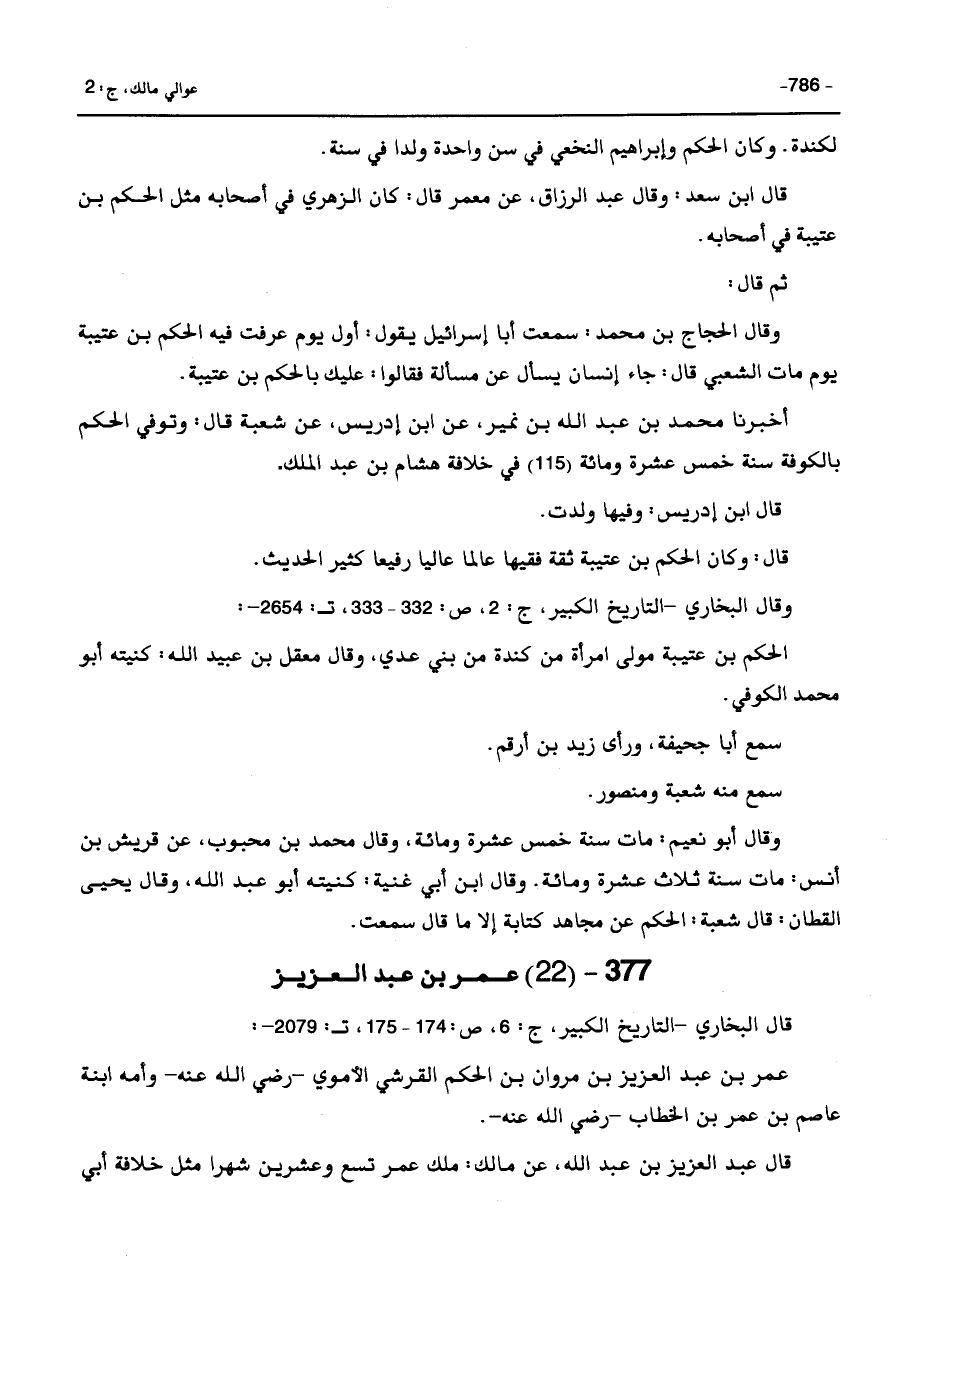 - 786- عوالي مالك، ج: 2
لكندة. وكان الحكم وإبراهيم النخعي في سن واحدة ولدا في سنة.
قال ابن سعد: وقال عبد الرزاق، عن معمر قال: كان الزهري في أصحابه مثل الحكم بن
عتيبة في أصحابه.
ثم قال:
وقال الحجاج بن محمد: سمعت أبا إسرائيل يقول: أول يوم عرفت فيه الحكم بن عتيبة
يوم مات الشعبي قال: جاء إنسان يسأل عن مسألة فقالوا: عليك بالحكم بن عتيبة.
أخبرنا محمد بن عبد الله بن نمير، عن ابن إدريس، عن شعبة قال: وتوفي الحكم
بالكوفة سنة خمس عشرة ومائة (115) في خلافة هشام بن عبد الملك.
قال ابن إدريس: وفيها ولدت.
قال: وكان الحكم بن عتيبة ثقة فقيها عالما عاليا رفيعا كثير الحديث.
وقال البخاري –التاريخ الكبير، ج: 2، ص: 332 - 333، تـ: 2654–:
الحكم بن عتيبة مولى امرأة من كندة من بني عدي، وقال معقل بن عبيد الله: كنيته أبو
محمد الكوفي.
سمع أبا جحيفة، ورأى زيد بن أرقم.
سمع منه شعبة ومنصور.
وقال أبو نعيم: مات سنة خمس عشرة ومائة، وقال محمد بن محبوب، عن قريش بن
أنس: مات سنة ثلاث عشرة ومائة. وقال ابن أبي غنية: كنيته أبو عبد الله، وقال يحيى
القطان: قال شعبة: الحكم عن مجاهد كتابة إلا ما قال سمعت.
377 - (22) عـمـر بن عبد الـعـزيـز
قال البخاري –التاريخ الكبير، ج: 6، ص: 174 - 175، تـ: 2079–:
عمر بن عبد العزيز بن مروان بن الحكم القرشي الأموي –رضي الله عنه– وأمه ابنة
عاصم بن عمر بن الخطاب –رضي الله عنه–.
قال عبد العزيز بن عبد الله، عن مالك: ملك عمر تسع وعشرين شهرا مثل خلافة أبي